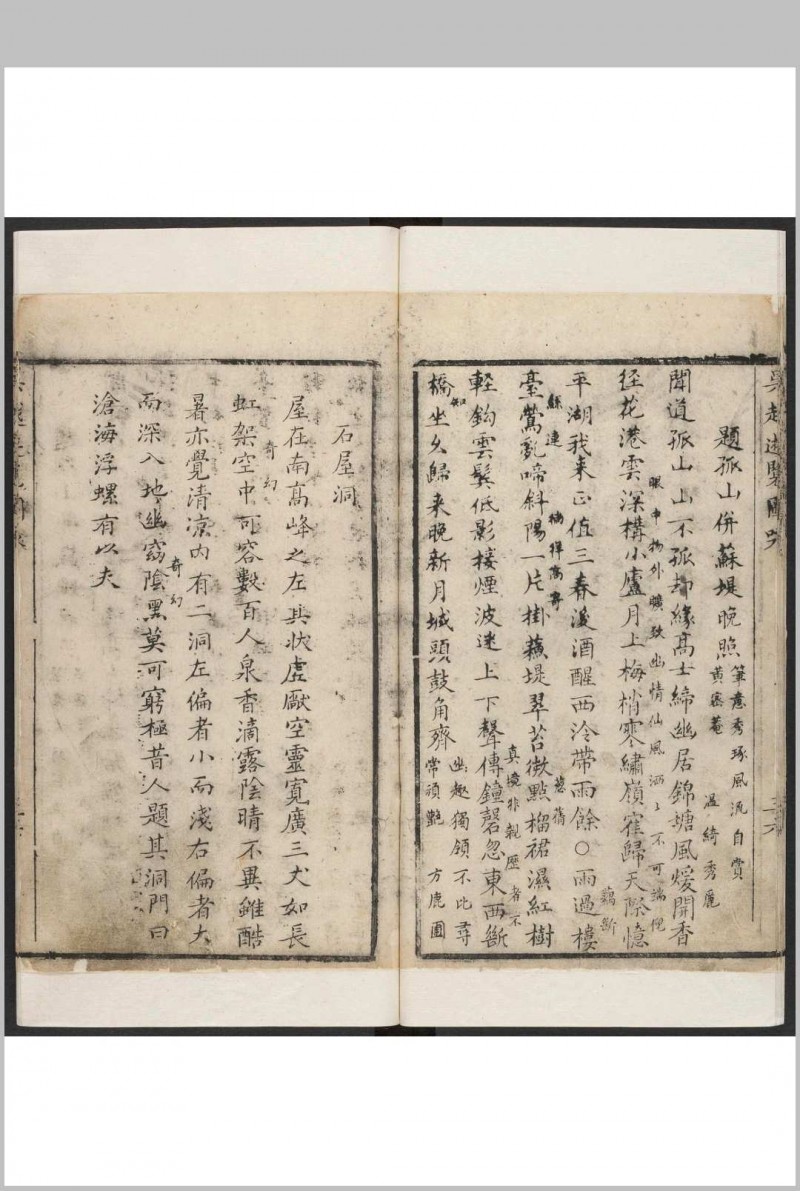 題孤山併蘇堤晚照 筆意秀琢風流自賞
黃寉菴 溫綺秀麗
聞道孤山山不孤却緣高士締幽居錦塘風煖開香
眼中物外曠致幽情仙風洒洒不可端倪
徑花港雲深構小廬月上梅梢寒繡嶺寉歸天際憶
藕斷
平湖我來正值三春後酒醒西泠帶雨餘○雨過樓
絲連 摘揮高奇 蕙蒨
臺鶯亂啼斜陽一片掛蘇堤翠苔微點榴裙濕紅樹
真境非親歷者不
輕鈎雲鬂低影接煙波迷上下聲傳鐘磬忽東西斷
知
橋坐久歸來晚新月城頭鼓角齊 幽趣獨領不比尋
常頑艷 方鹿圃
石屋洞
屋在南高峰之左其狀虛厰空靈寬廣三丈如長
奇幻
虹架空中可容數百人泉香滴露陰晴不異雖酷
暑亦覺清凉內有二洞左偏者小而淺右偏者大
奇幻
而深入地幽窈陰黑莫可窮極昔人題其洞門曰
滄海浮螺有以夫